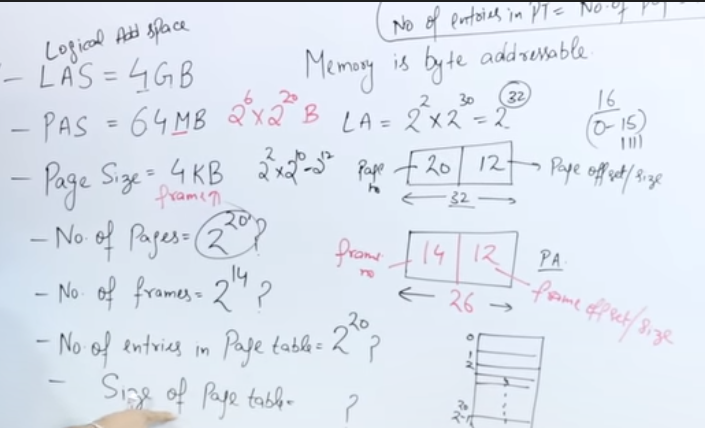 No of entries in PT = No. of
Logical Add space
Memory is byte addressable.
- LAS = 4GB
- PAS = 64MB 2^6 x 2^20 B
LA = 2^2 x 2^30 = 2^32
16
(0-15)
1111
- Page Size = 4KB 2^2 x 2^10 = 2^12
frame
Page no
20 | 12
Page offset/size
32
- No. of Pages = 2^20 ?
frame no
14 | 12
PA.
26
frame offset/size
- No. of frames = 2^14 ?
- No. of entries in Page table = 2^20 ?
0
1
2
2^20-1
- Size of Page table = ?